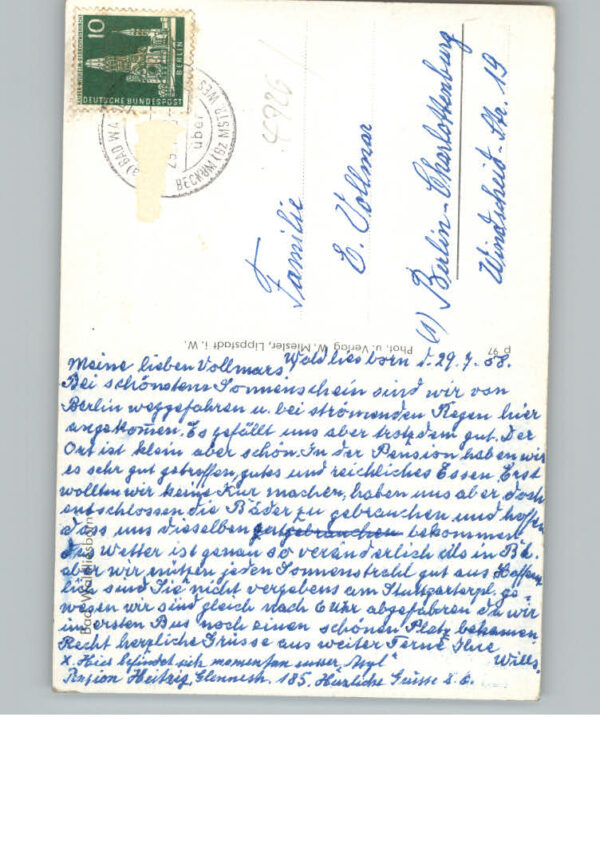 10
DEUTSCHE BUNDESPOST
BERLIN
über
BECKUM (BZ MSTR WESTF)
4926
Familie
E. Vollmar
(1) Berlin-Charlottenburg
Windscheid-Str. 19
Phot. u. Verlag W. Miesler, Lippstadt i. W.
P 97
Bad Waldliesborn
Waldliesborn d. 29.7.58.
Meine lieben Vollmars
Bei schönstem Sonnenschein sind wir von
Berlin weggefahren u. bei strömenden Regen hier
angekommen. Es gefällt uns aber trotzdem gut. Der
Ort ist klein aber schön. In der Pension haben wir
es sehr gut getroffen, gutes und reichliches Essen. Erst
wollten wir keine Kur machen, haben uns aber doch
entschlossen die Bäder zu gebrauchen und hoffen
dass uns dieselben gut gebrauchen bekommen
das Wetter ist genau so veränderlich als in Bln.
aber wir nützen jeden Sonnenstrahl gut aus. Hoffent
lich sind Sie nicht vergebens am Stuttgarterpl. ge-
wesen wir sind gleich nach 6 Uhr abgefahren da wir
im ersten Bus noch einen schönen Platz bekamen
Recht herzliche Grüsse aus weiter Ferne Ihre
Wills.
X. Hier befindet sich momentan unser "Asyl"
Pension Heitzig, Glennestr. 185. Herzliche Grüsse